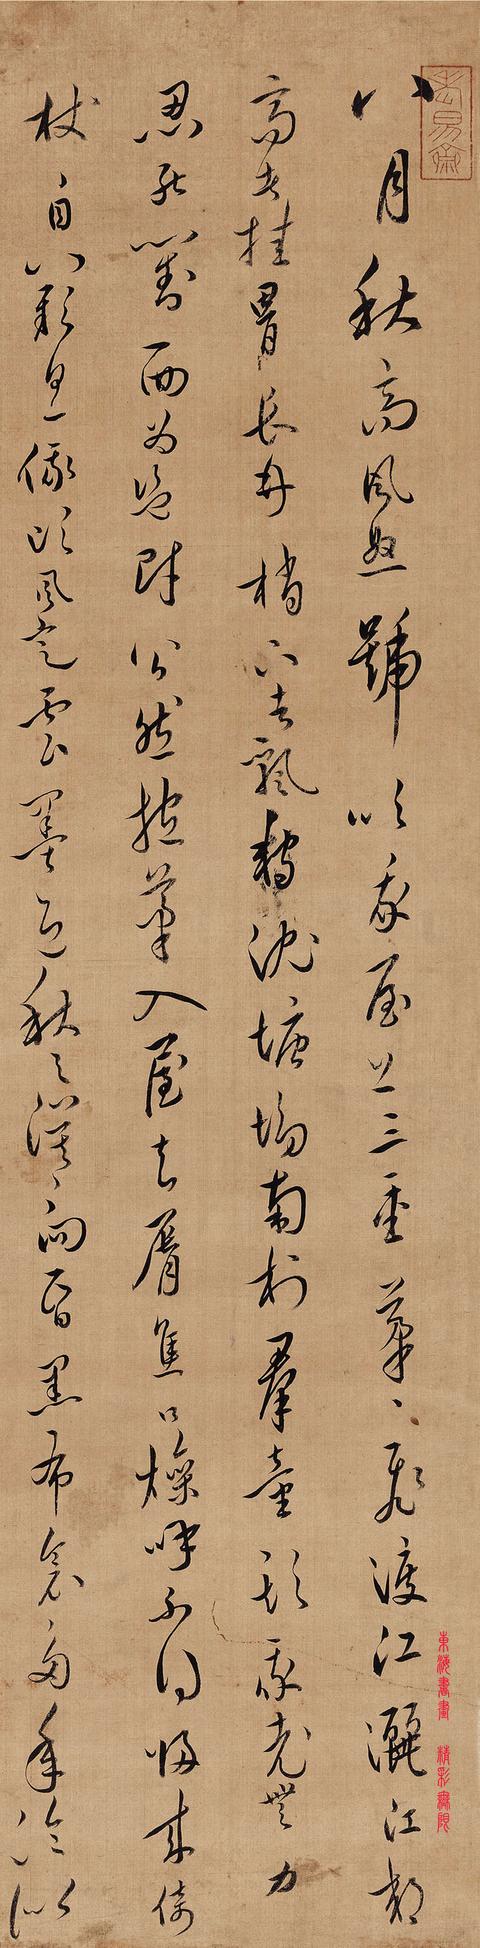 八月秋高風怒號我屋上三重茅々飛渡江灑江郊
高者挂罥長林梢下者飄轉沈塘坳南村羣童欺我老無力
忍能對面為盜賊公然抱茅入屋去脣焦口燥呼不得歸來倚
杖自歎息俄頃風定雲墨色秋天漠々向昏黑布衾多年冷似
東海書畫 精彩無限